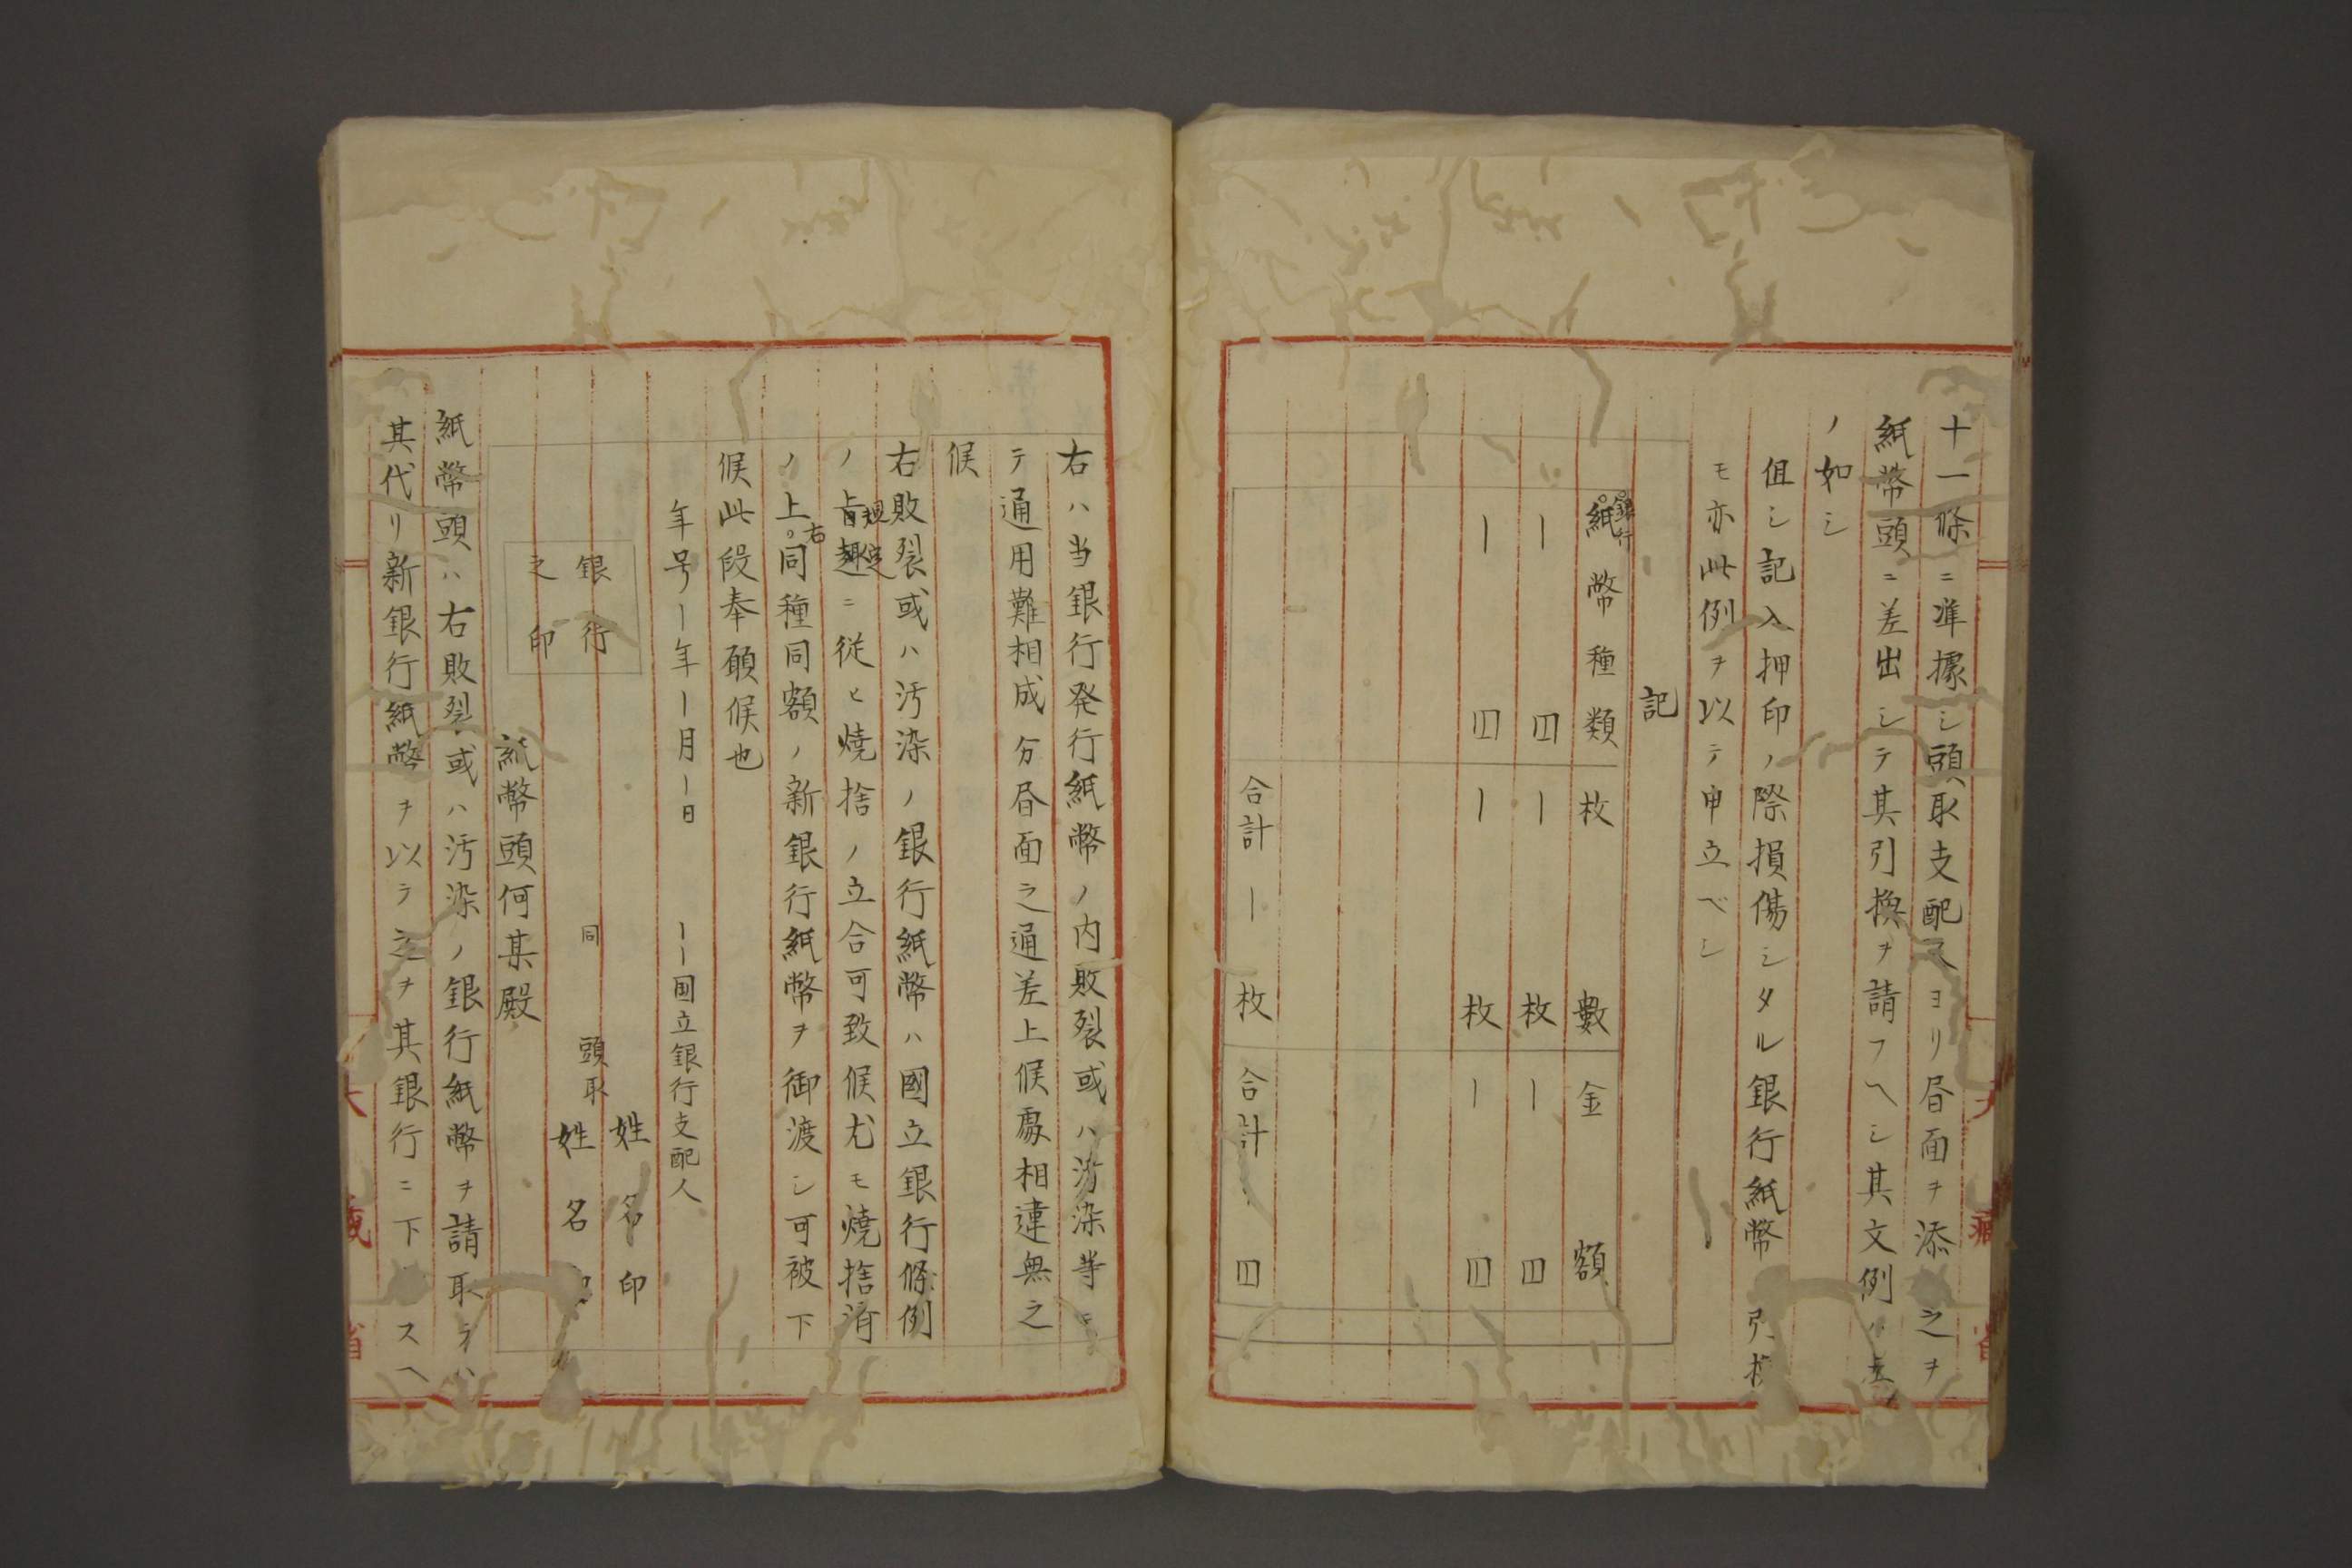 十一條ニ準據シ頭取支配人ヨリ昏面ヲ添 之ヲ
紙幣頭ニ差出シテ其引換ヲ請フヘシ其文例ハ左
ノ如シ
但シ記入押印ノ際損傷シタル銀行紙幣 引換
モ亦此例ヲ以テ申立ベシ
記
銀行
紙幣種類 枚數 金額
ー 円 ー 枚 ー 円
ー 円 ー 枚 ー 円
合計 ー 枚 合計 円
右ハ当銀行発行紙幣ノ内敗裂或ハ汚染等ニ
テ通用難相成分昏面之通差上候處相違無之
候
右敗裂或ハ汚染ノ銀行紙幣ハ國立銀行條例
規定
ノ旨趣ニ従ヒ燒捨ノ立合可致候尤モ燒捨済
右
ノ上。同種同額ノ新銀行紙幣ヲ御渡シ可被下
候此段奉願候也
年号ー年ー月ー日 ーー国立銀行支配人
姓名印
銀行
之印
同 頭取
姓名
紙幣頭何某殿
紙幣頭ハ右敗裂或ハ汚染ノ銀行紙幣ヲ請取ラハ
其代リ新銀行紙幣ヲ以テ之ヲ其銀行ニ下 スヘ
大藏省